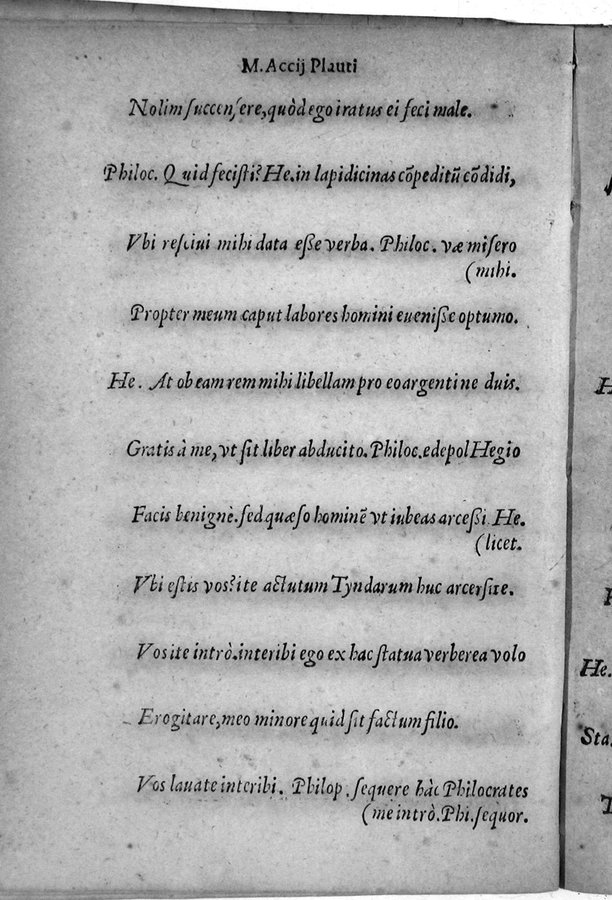 M. Accij Plauti
Nolim succensere, quòd ego iratus ei feci male.
Philoc. Quid fecisti? He. in lapidicinas cõpeditũ cõdidi,
Vbi resciui mihi data eße verba. Philoc. væ misero
(mihi.
Propter meum caput labores homini eueniße optumo.
He. At ob eam rem mihi libellam pro eo argenti ne duis.
Gratis à me, vt sit liber abducito. Philoc. edepol Hegio
Facis benignè. sed quæso hominẽ vt iubeas arceßi. He.
(licet.
Vbi estis vos? ite actutum Tyndarum huc arcersite.
Vos ite intrò. interibi ego ex hac statua verberea volo
Erogitare, meo minore quid sit factum filio.
Vos lauate interibi. Philop. sequere hàc Philocrates
(me intrò. Phi. sequor.
He.
Sta.